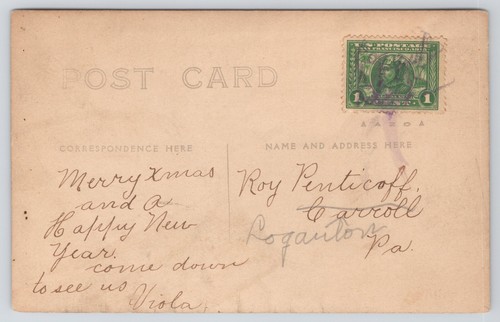 U.S. POSTAGE
SAN FRANCISCO 1915
1 1
POST CARD
AZO
CORRESPONDENCE HERE
NAME AND ADDRESS HERE
Merry Xmas
and a
Happy New
Year.
come down
to see us
Viola
Roy Penticoff,
Carroll
Loganton
Pa.